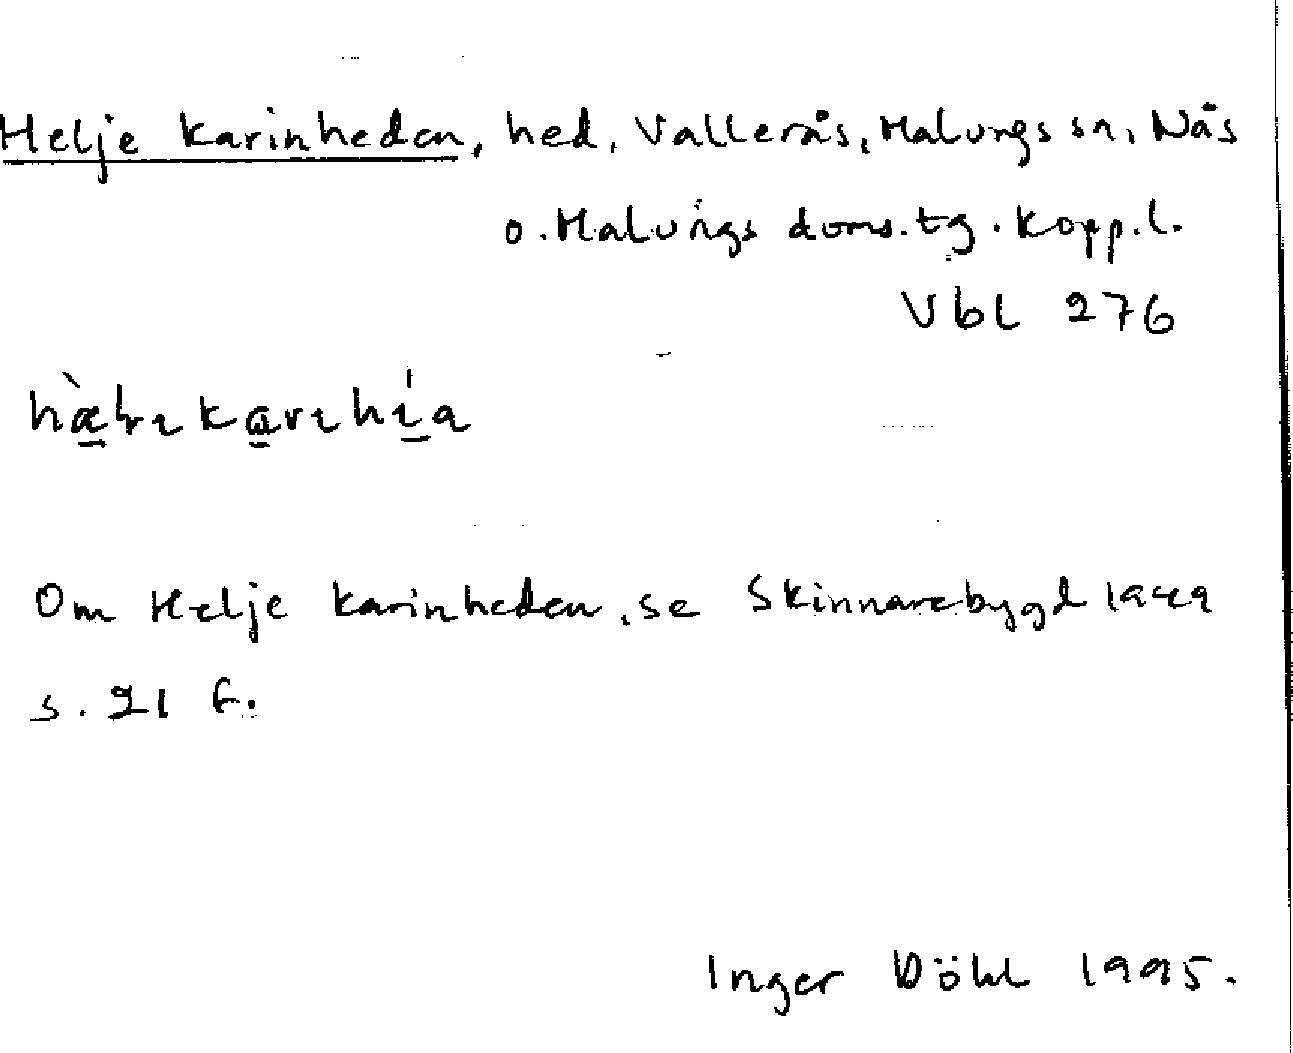 Helje Karinheden, hed, Vallerås, Malungs sn, Nås
o. Malungs doms.tg. Kopp.l.
Vbl 276
Om Helje Karinheden, se Skinnarebygd 1949
s. 21 f.
Inger Döhl 1995.